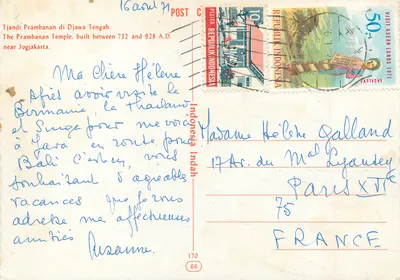 16 août 71
POST C
Tjandi Prambanan di Djawa Tengah.
The Prambanan Temple, built between 732 and 928 A.D.
near Jogjakarta.
Ma chère Hélène
Après avoir visité la
Birmanie, la Thailande
et Singapour me voici
à Java en route pour
Bali
vous
souhaitant d'agréables
vacances que je vous
adresse mes affectueuses
amitiés
Suzanne.
Indonesia Indah
170
66
PELITA
REPUBLIK INDONESIA
10r
VISIT ASEAN LANDS 1971
50r
REPUBLIK INDONESIA
Madame Hélène Galland
17 Av. du Mal Lyautey
Paris XVIe
75
FRANCE